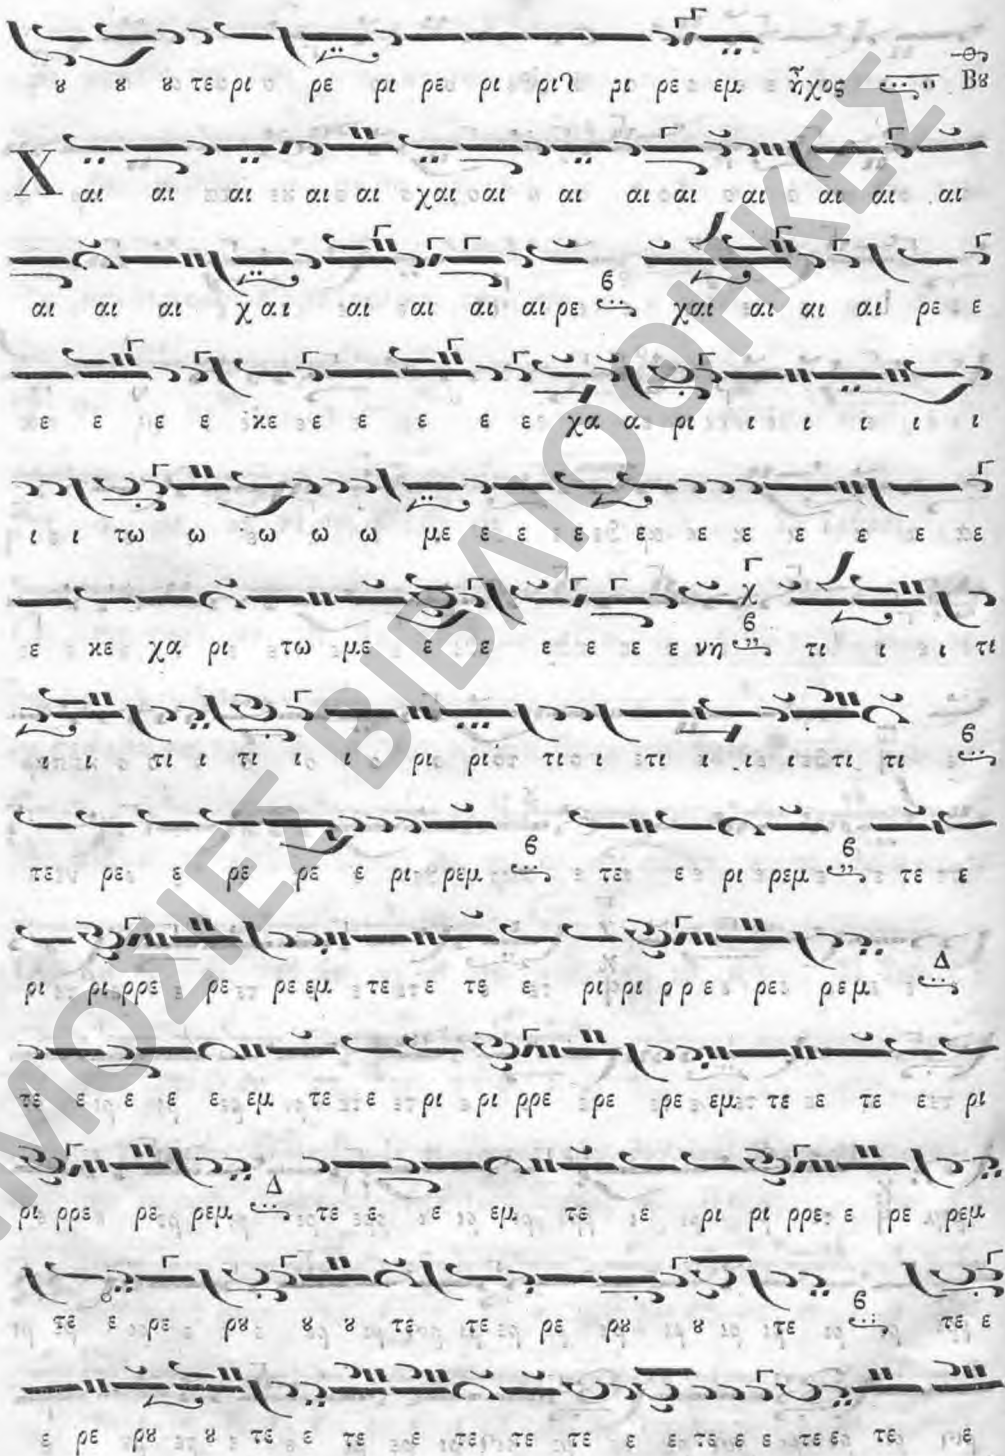 ȣ ȣ ȣ τε ρι ο ρε ρι ρε ρι ρι ρι ρε εμ ἦχος Βȣ
Χ αι αι αι αι αι χαι αι αι αι αι αι αι αι αι
αι αι αι χαι αι αι αι αι αι ρε ϐ χαι αι αι αι ρε ε
ε ε ε ε κε ε ε ε ε ε ε χα α ρι ι ι ι ι ι
ι ι τω ω ω ω ω με ε ε ε ε ε ε ε ε ε ε ε
ε κε χα ρι τω με ε ε ε ε ε ε νη ϐ τι ι ι τι
ι ι τι ι τι ι ι ρι ρι τι ι ι τι ι ι ι τι τι ϐ
τε ρε ε ρε ρε ε ρι ρεμ ϐ τε ε ρι ρεμ ϐ τε ε
ρι ρι ρρε ρε ρε εμ τε ε τε ε ρι ρι ρρε ρε ρεμ Δ
τε ε ε ε ε εμ τε ε ρι ρι ρρε ρε ρε εμ τε ε τε ε ρι
ρι ρρε ρε ρεμ Δ τε ε ε εμ τε ε ρι ρι ρρε ε ρε ρεμ
τε ε ρε ρȣ ȣ ȣ τε τε ρε ρȣ ȣ τε ϐ τε ε
ε ρε ρȣ ȣ τε ε τε ε τε τε τε ε ε τε ε ε τε ε τε ε
ΜΟΣΙΕΣ ΒΙΒΛΙΟΘΗΚΕΣ